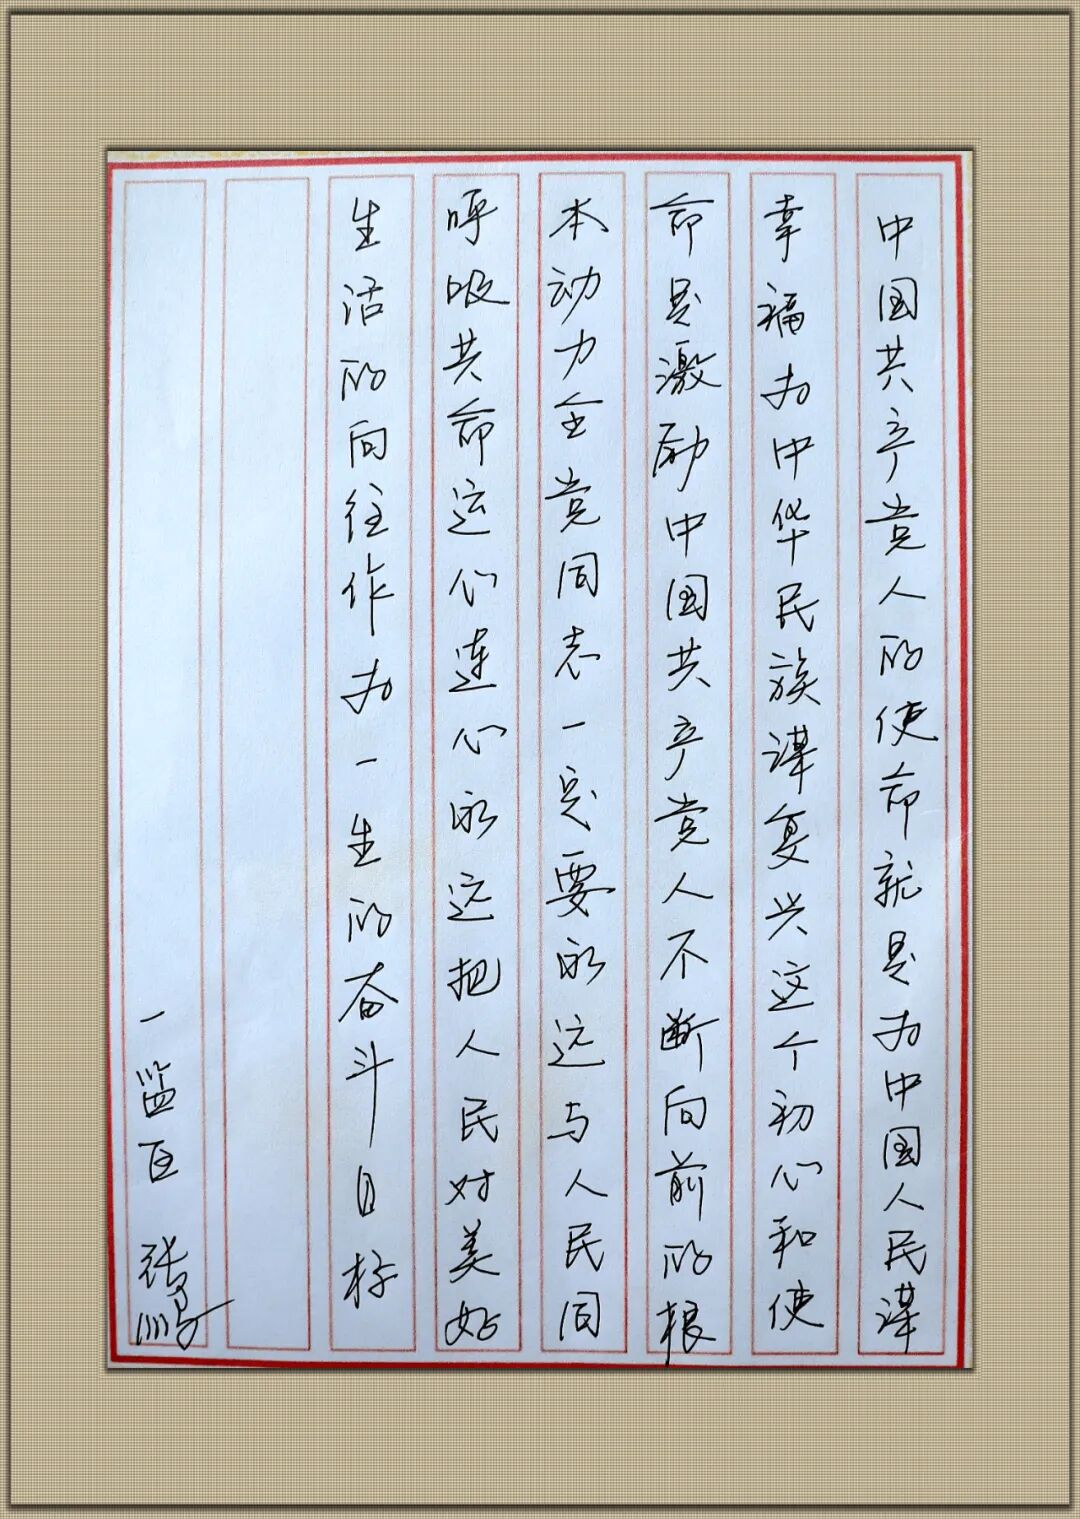 中国共产党人的使命就是为中国人民谋
幸福为中华民族谋复兴这个初心和使
命是激励中国共产党人不断向前的根
本动力全党同志一定要永远与人民同
呼吸共命运心连心永远把人民对美好
生活的向往作为一生的奋斗目标
一监区 张鹏